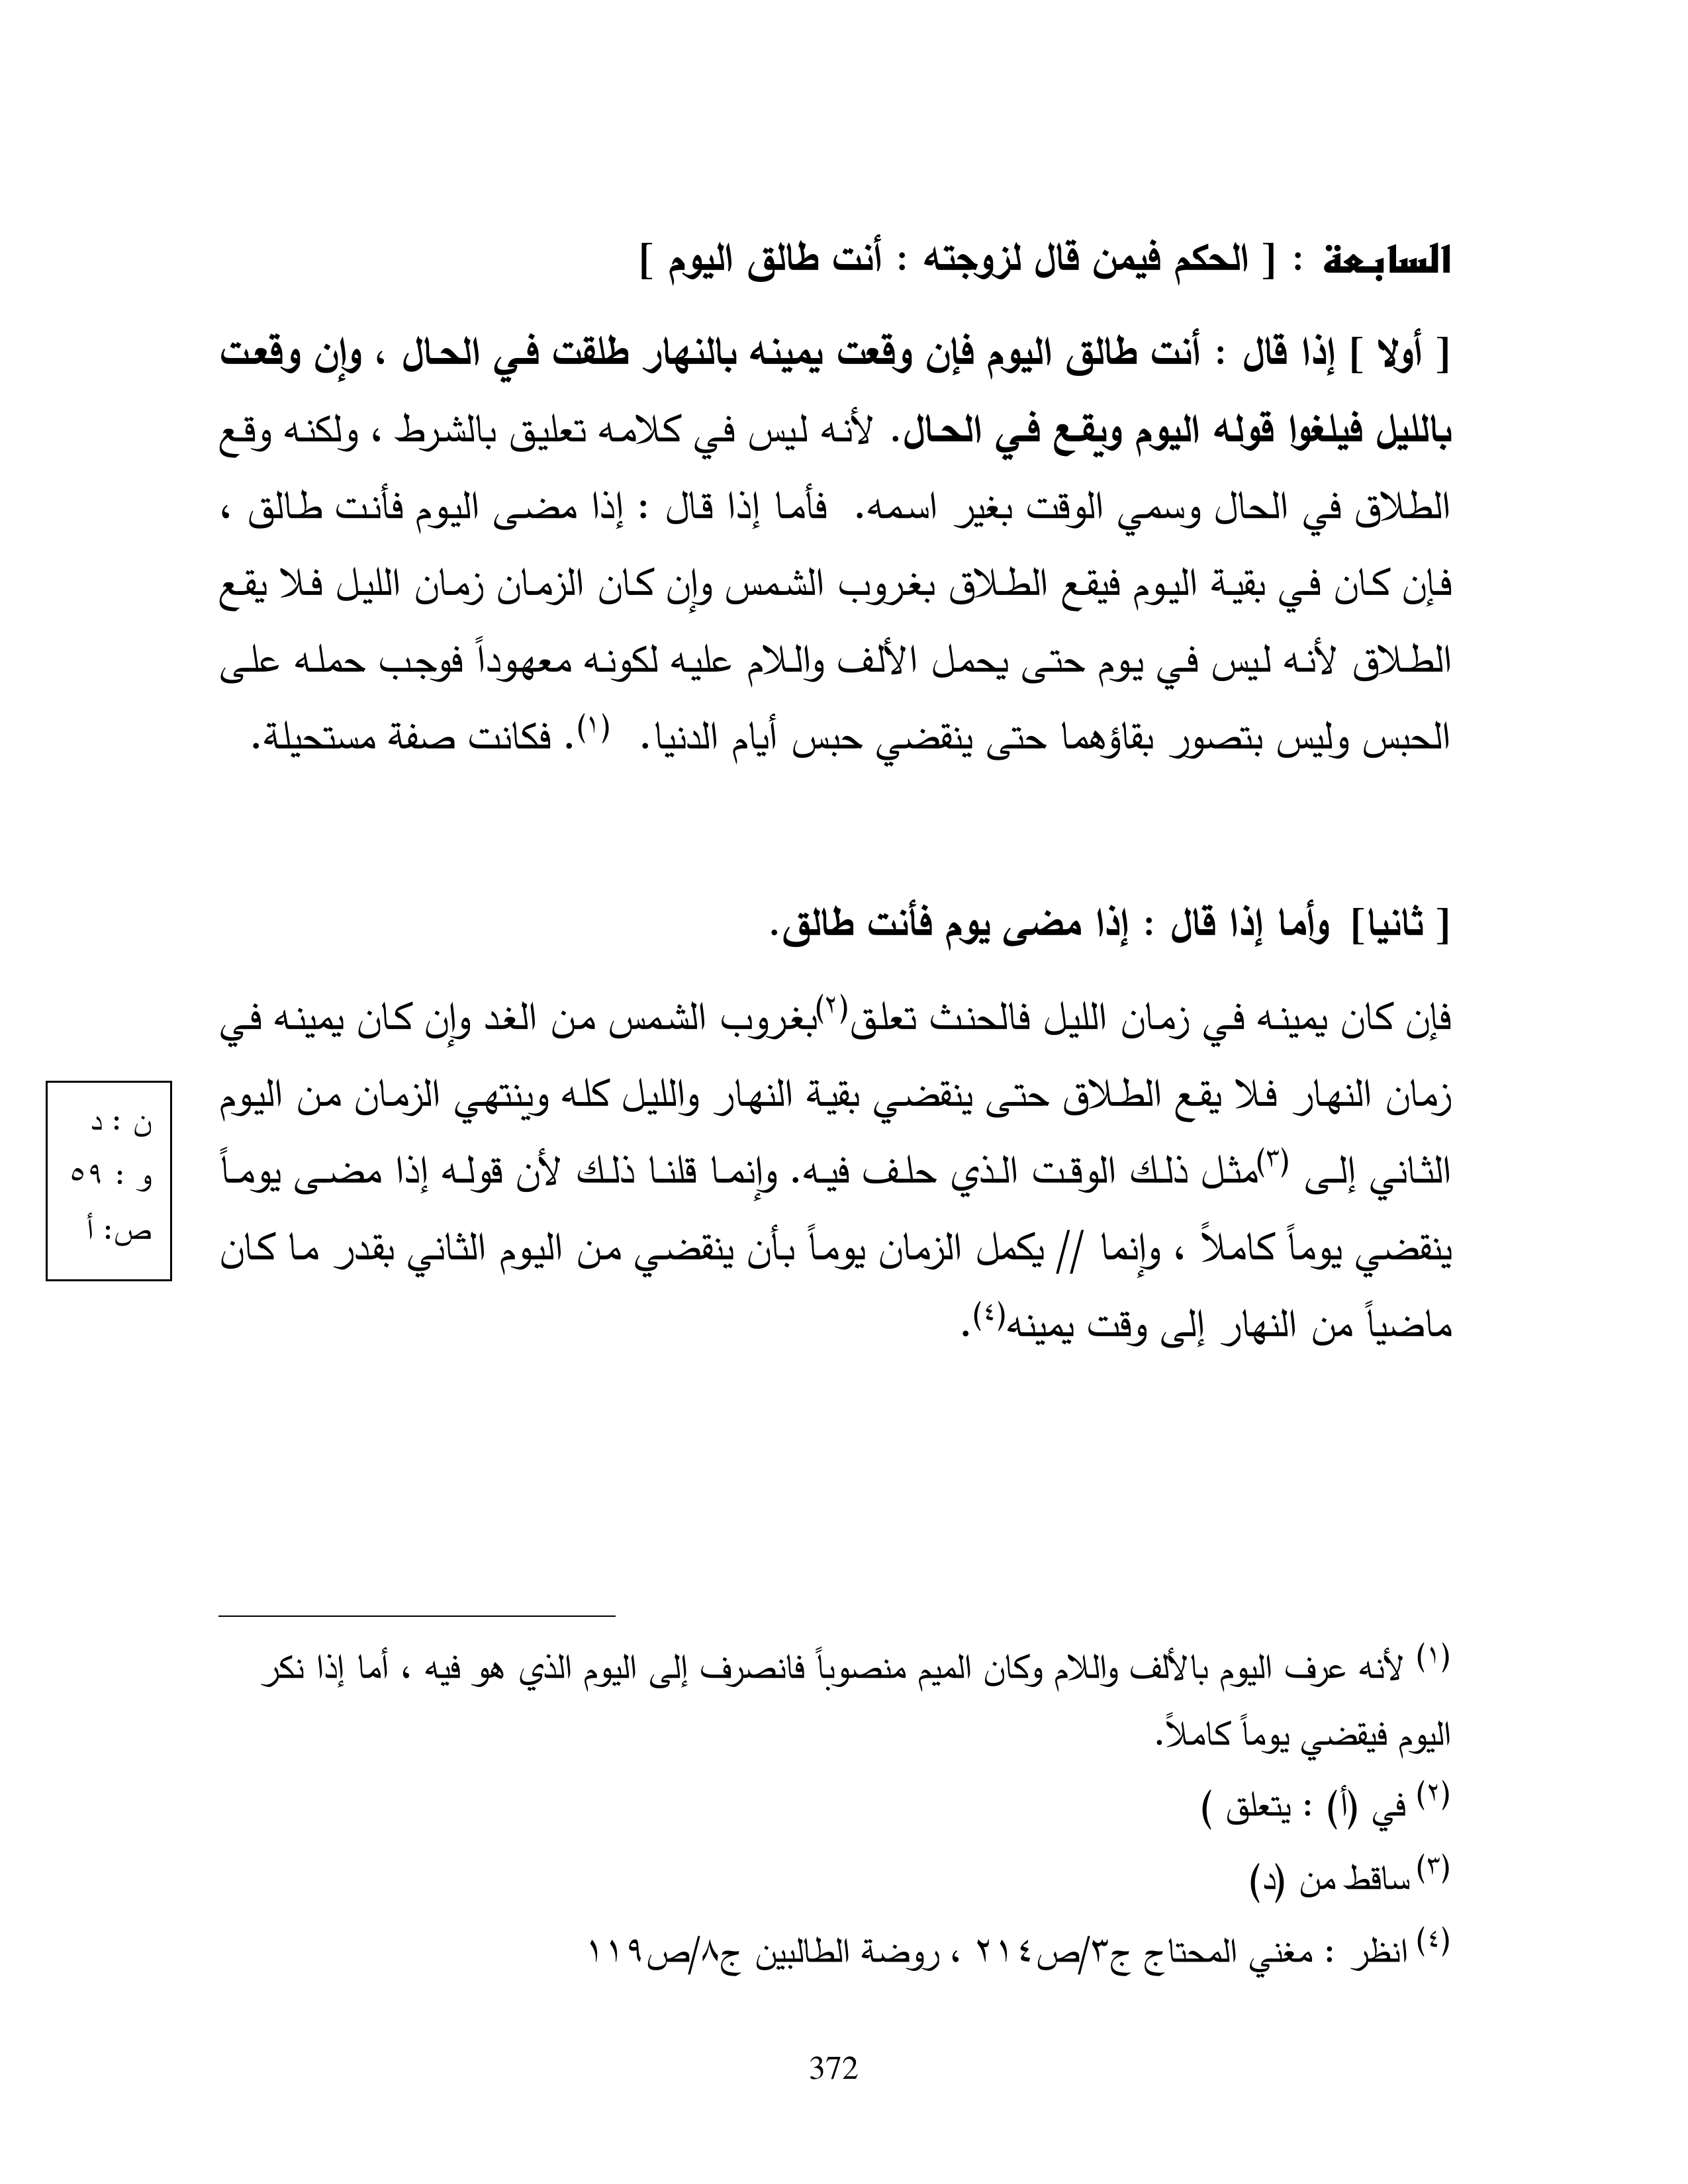 السابعة : [ الحكم فيمن قال لزوجته : أنت طالق اليوم ]
[ أولا ] إذا قال : أنت طالق اليوم فإن وقعت يمينه بالنهار طلقت في الحال ، وإن وقعت
بالليل فيلغوا قوله اليوم ويقع في الحال. لأنه ليس في كلامه تعليق بالشرط ، ولكنه وقع
الطلاق في الحال وسمي الوقت بغير اسمه. فأما إذا قال : إذا مضى اليوم فأنت طالق ،
فإن كان في بقية اليوم فيقع الطلاق بغروب الشمس وإن كان الزمان زمان الليل فلا يقع
الطلاق لأنه ليس في يوم حتى يحمل الألف واللام عليه لكونه معهوداً فوجب حمله على
الحبس وليس بتصور بقاؤهما حتى ينقضي حبس أيام الدنيا. (١). فكانت صفة مستحيلة.
[ ثانيا] وأما إذا قال : إذا مضى يوم فأنت طالق.
فإن كان يمينه في زمان الليل فالحنث تعلق(٢)بغروب الشمس من الغد وإن كان يمينه في
زمان النهار فلا يقع الطلاق حتى ينقضي بقية النهار والليل كله وينتهي الزمان من اليوم
الثاني إلى (٣)مثل ذلك الوقت الذي حلف فيه. وإنما قلنا ذلك لأن قوله إذا مضى يوماً
ينقضي يوماً كاملاً ، وإنما // يكمل الزمان يوماً بأن ينقضي من اليوم الثاني بقدر ما كان
ماضياً من النهار إلى وقت يمينه(٤).
ن : د
و : ٥٩
ص: أ
(١) لأنه عرف اليوم بالألف واللام وكان الميم منصوباً فانصرف إلى اليوم الذي هو فيه ، أما إذا نكر
اليوم فيقضي يوماً كاملاً.
(٢) في (أ) : يتعلق )
(٣) ساقط من (د)
(٤) انظر : مغني المحتاج ج٣/ص٢١٤ ، روضة الطالبين ج٨/ص١١٩
372